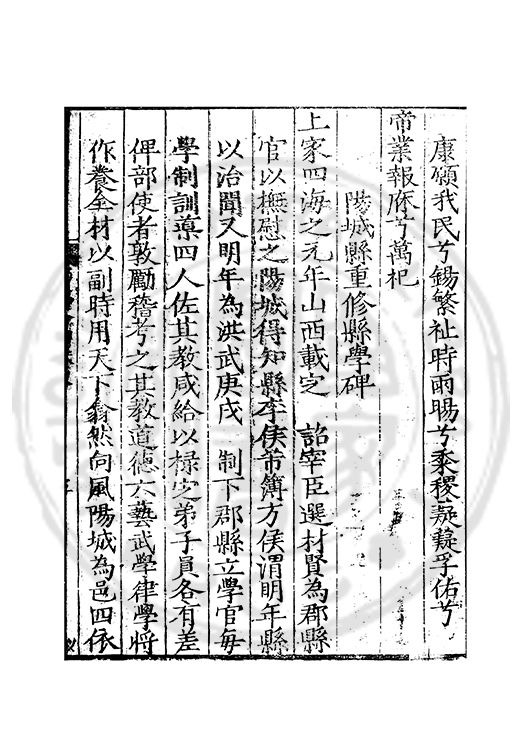 康願我民兮錫繁祉時雨暘兮黍稷薿薿孚佑兮
帝業報庥兮萬祀
陽城縣重修縣學碑
上家四海之元年山西載定 詔宰臣選材賢為郡縣
官以撫慰之陽城得知縣李侯芾簿方侯渭明年縣
以治聞又明年為洪武庚戌 制下郡縣立學官每
學制訓導四人佐其教咸給以祿定弟子員各有差
俾部使者敦勵稽考之其教道德六藝武學律學將
作養全材以副時用天下翕然向風陽城為邑四依